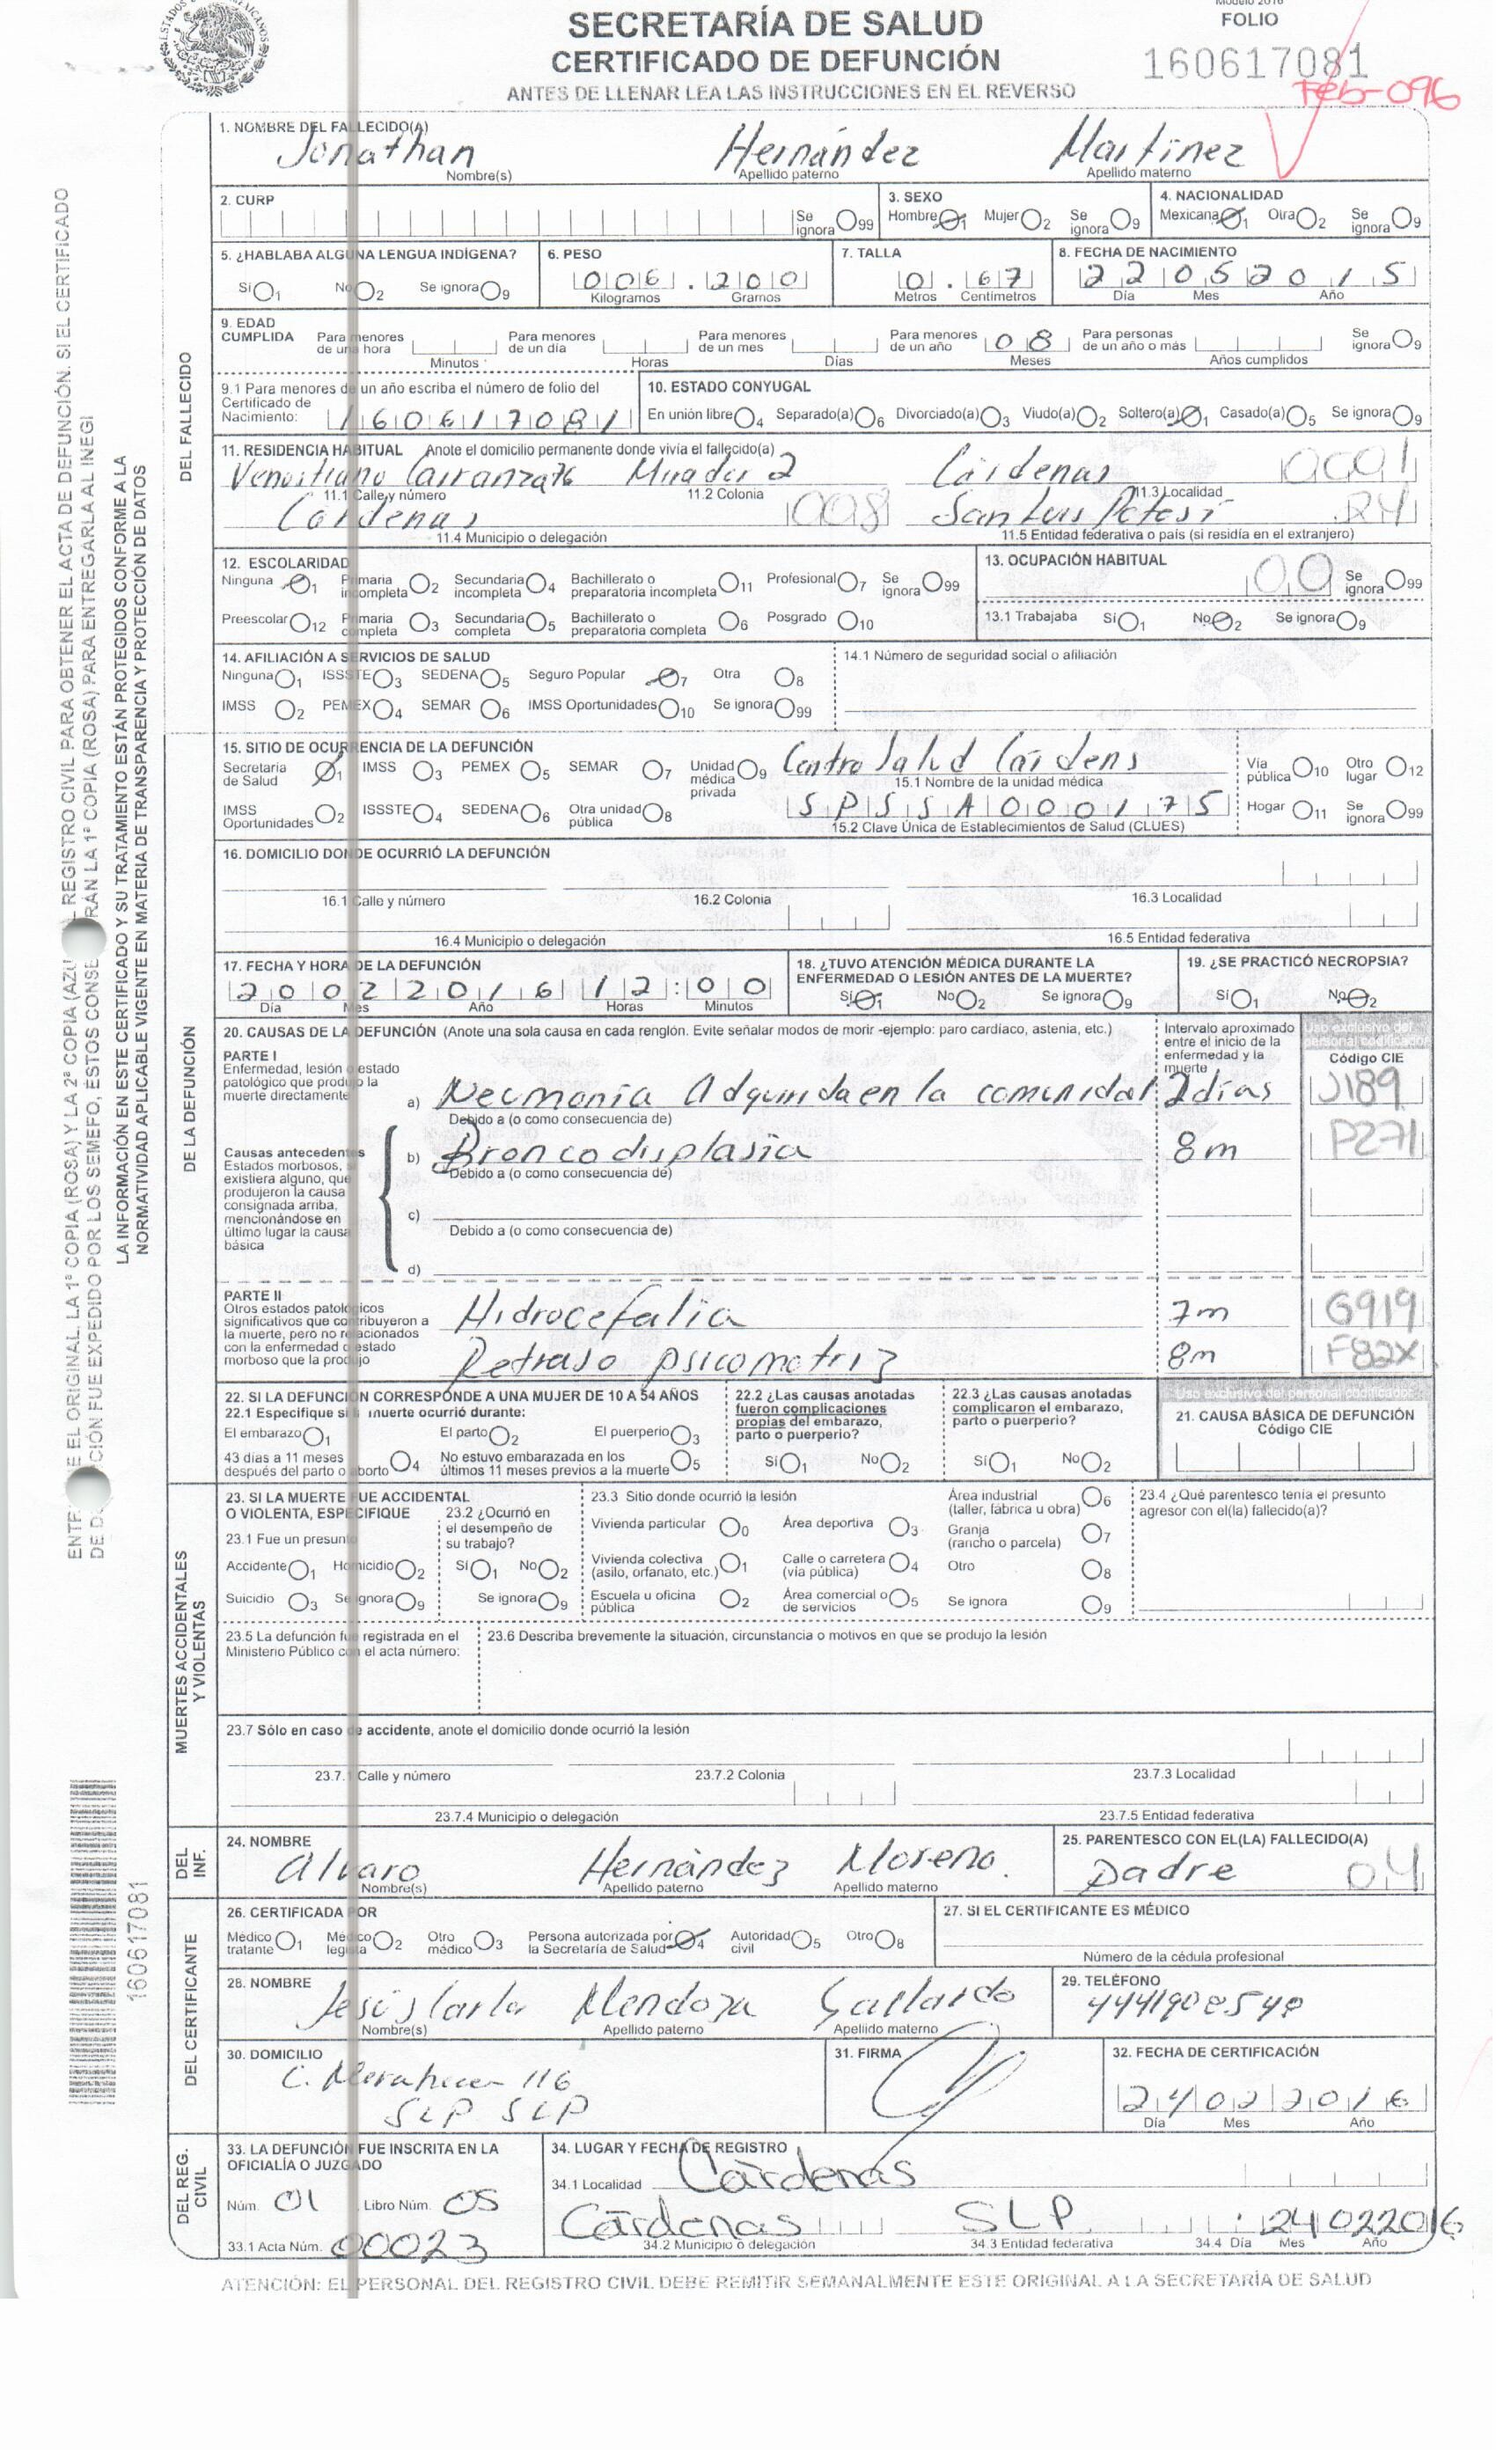 Modelo 2016
SECRETARÍA DE SALUD
FOLIO
CERTIFICADO DE DEFUNCIÓN
160617081
ANTES DE LLENAR LEA LAS INSTRUCCIONES EN EL REVERSO
Feb-096
1. NOMBRE DEL FALLECIDO(A)
Jonathan Hernández Martinez
Nombre(s) Apellido paterno Apellido materno
2. CURP Se ignora 99 3. SEXO Hombre 1 Mujer 2 Se ignora 9 4. NACIONALIDAD Mexicana 1 Otra 2 Se ignora 9
5. ¿HABLABA ALGUNA LENGUA INDÍGENA? 6. PESO 7. TALLA 8. FECHA DE NACIMIENTO
Sí 1 No 2 Se ignora 9 006.200 0.67 22052015
Kilogramos Gramos Metros Centímetros Día Mes Año
9. EDAD CUMPLIDA Para menores de una hora Para menores de un día Para menores de un mes Para menores de un año 08 Para personas de un año o más Se ignora 9
Minutos Horas Días Meses Años cumplidos
9.1 Para menores de un año escriba el número de folio del Certificado de Nacimiento: 160617081
10. ESTADO CONYUGAL
En unión libre 4 Separado(a) 6 Divorciado(a) 3 Viudo(a) 2 Soltero(a) 1 Casado(a) 5 Se ignora 9
11. RESIDENCIA HABITUAL Anote el domicilio permanente donde vivía el fallecido(a)
Venustiano Carranza 76 Mirador 2 Cárdenas 0001
11.1 Calle y número 11.2 Colonia 11.3 Localidad
Cárdenas 008 San Luis Potosí 24
11.4 Municipio o delegación 11.5 Entidad federativa o país (si residía en el extranjero)
12. ESCOLARIDAD
Ninguna 1 Primaria incompleta 2 Secundaria incompleta 4 Bachillerato o preparatoria incompleta 11 Profesional 7 Se ignora 99
Preescolar 12 Primaria completa 3 Secundaria completa 5 Bachillerato o preparatoria completa 6 Posgrado 10
13. OCUPACIÓN HABITUAL
00 Se ignora 99
13.1 Trabajaba Sí 1 No 2 Se ignora 9
14. AFILIACIÓN A SERVICIOS DE SALUD
Ninguna 1 ISSSTE 3 SEDENA 5 Seguro Popular 7 Otra 8
IMSS 2 PEMEX 4 SEMAR 6 IMSS Oportunidades 10 Se ignora 99
14.1 Número de seguridad social o afiliación
15. SITIO DE OCURRENCIA DE LA DEFUNCIÓN
Secretaría de Salud 1 IMSS 3 PEMEX 5 SEMAR 7 Unidad médica privada 9
IMSS Oportunidades 2 ISSSTE 4 SEDENA 6 Otra unidad pública 8
Centro Salud Cárdens
15.1 Nombre de la unidad médica
SPSSA000175
15.2 Clave Única de Establecimientos de Salud (CLUES)
Vía pública 10 Otro lugar 12
Hogar 11 Se ignora 99
16. DOMICILIO DONDE OCURRIÓ LA DEFUNCIÓN
16.1 Calle y número 16.2 Colonia 16.3 Localidad
16.4 Municipio o delegación 16.5 Entidad federativa
17. FECHA Y HORA DE LA DEFUNCIÓN
20022016 12:00
Día Mes Año Horas Minutos
18. ¿TUVO ATENCIÓN MÉDICA DURANTE LA ENFERMEDAD O LESIÓN ANTES DE LA MUERTE?
Sí 1 No 2 Se ignora 9
19. ¿SE PRACTICÓ NECROPSIA?
Sí 1 No 2
20. CAUSAS DE LA DEFUNCIÓN (Anote una sola causa en cada renglón. Evite señalar modos de morir -ejemplo: paro cardíaco, astenia, etc.)
Intervalo aproximado entre el inicio de la enfermedad y la muerte
Uso exclusivo del personal codificador
Código CIE
PARTE I
Enfermedad, lesión o estado patológico que produjo la muerte directamente
a) Neumonia Adquirida en la comunidad 2 días J189
Debido a (o como consecuencia de)
Causas antecedentes
Estados morbosos, si existiera alguno, que produjeron la causa consignada arriba, mencionándose en último lugar la causa básica
b) Broncodisplasia 8m P271
Debido a (o como consecuencia de)
c)
Debido a (o como consecuencia de)
d)
PARTE II
Otros estados patológicos significativos que contribuyeron a la muerte, pero no relacionados con la enfermedad o estado morboso que la produjo
Hidrocefalia 7m G919
Retraso psicomotriz 8m F82X
22. SI LA DEFUNCIÓN CORRESPONDE A UNA MUJER DE 10 A 54 AÑOS
22.1 Especifique si la muerte ocurrió durante:
El embarazo 1 El parto 2 El puerperio 3
43 días a 11 meses después del parto o aborto 4 No estuvo embarazada en los últimos 11 meses previos a la muerte 5
22.2 ¿Las causas anotadas fueron complicaciones propias del embarazo, parto o puerperio?
Sí 1 No 2
22.3 ¿Las causas anotadas complicaron el embarazo, parto o puerperio?
Sí 1 No 2
Uso exclusivo del personal codificador
21. CAUSA BÁSICA DE DEFUNCIÓN
Código CIE
23. SI LA MUERTE FUE ACCIDENTAL O VIOLENTA, ESPECIFIQUE
23.1 Fue un presunto
Accidente 1 Homicidio 2
Suicidio 3 Se ignora 9
23.2 ¿Ocurrió en el desempeño de su trabajo?
Sí 1 No 2
Se ignora 9
23.3 Sitio donde ocurrió la lesión
Vivienda particular 0 Área deportiva 3 Área industrial (taller, fábrica u obra) 6
Granja (rancho o parcela) 7
Vivienda colectiva (asilo, orfanato, etc.) 1 Calle o carretera (vía pública) 4 Otro 8
Escuela u oficina pública 2 Área comercial o de servicios 5 Se ignora 9
23.4 ¿Qué parentesco tenía el presunto agresor con el(la) fallecido(a)?
23.5 La defunción fue registrada en el Ministerio Público con el acta número:
23.6 Describa brevemente la situación, circunstancia o motivos en que se produjo la lesión
23.7 Sólo en caso de accidente, anote el domicilio donde ocurrió la lesión
23.7.1 Calle y número 23.7.2 Colonia 23.7.3 Localidad
23.7.4 Municipio o delegación 23.7.5 Entidad federativa
24. NOMBRE
Alvaro Hernández Moreno.
Nombre(s) Apellido paterno Apellido materno
25. PARENTESCO CON EL(LA) FALLECIDO(A)
Padre 04
26. CERTIFICADA POR
Médico tratante 1 Médico legista 2 Otro médico 3 Persona autorizada por la Secretaría de Salud 4 Autoridad civil 5 Otro 8
27. SI EL CERTIFICANTE ES MÉDICO
Número de la cédula profesional
28. NOMBRE
Jesús Mendoza Gallardo
Nombre(s) Apellido paterno Apellido materno
29. TELÉFONO
30. DOMICILIO
116
SLP SLP
31. FIRMA
32. FECHA DE CERTIFICACIÓN
24022016
Día Mes Año
33. LA DEFUNCIÓN FUE INSCRITA EN LA OFICIALÍA O JUZGADO
Núm. 01 Libro Núm. 05
33.1 Acta Núm. 00023
34. LUGAR Y FECHA DE REGISTRO
34.1 Localidad Cárdenas
Cárdenas SLP 24022016
34.2 Municipio o delegación 34.3 Entidad federativa 34.4 Día Mes Año
ATENCIÓN: EL PERSONAL DEL REGISTRO CIVIL DEBE REMITIR SEMANALMENTE ESTE ORIGINAL A LA SECRETARÍA DE SALUD
DEL FALLECIDO
DE LA DEFUNCIÓN
MUERTES ACCIDENTALES Y VIOLENTAS
DEL INF.
DEL CERTIFICANTE
DEL REG. CIVIL
LA INFORMACIÓN EN ESTE CERTIFICADO Y SU TRATAMIENTO ESTÁN PROTEGIDOS CONFORME A LA
NORMATIVIDAD APLICABLE VIGENTE EN MATERIA DE TRANSPARENCIA Y PROTECCIÓN DE DATOS
160617081